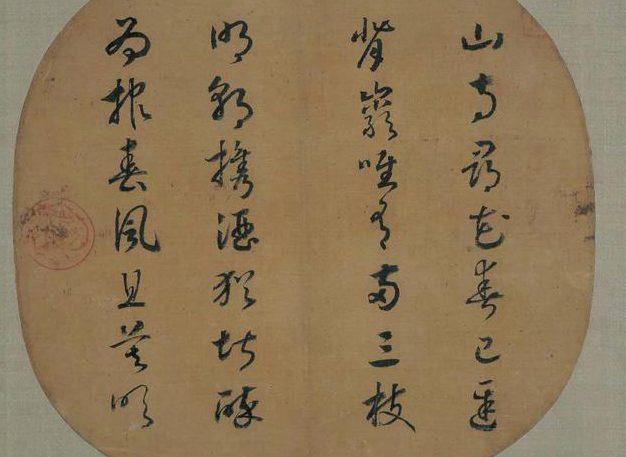 山寺尋花春已遲
背巖唯有兩三枝
明朝攜酒猶堪醉
為報春風且莫吹